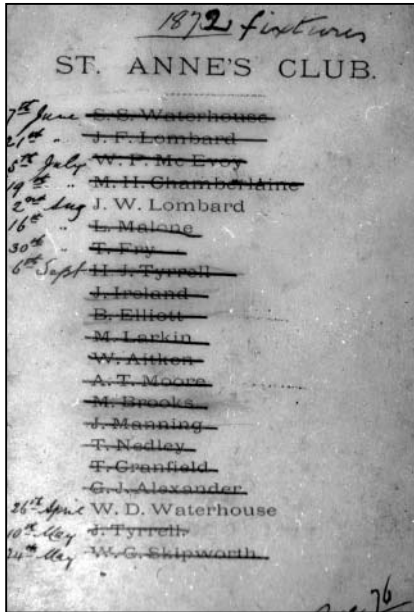 1872 fixtures
ST. ANNE'S CLUB.
7th June S. S. Waterhouse
21st " J. F. Lombard
5th July W. P. Mc Evoy
19th " M. H. Chamberlaine
2nd Aug J. W. Lombard
16th " L. Malone
30th " T. Fry
6th Sept H. J. Tyrrell
J. Ireland
B. Elliott
M. Larkin
W. Aitken
A. T. Moore
M. Brooks
J. Manning
T. Nedley
T. Granfield
G. J. Alexander
26th April W. D. Waterhouse
10th May J. Tyrrell.
24th May W. G. Skipworth.
76